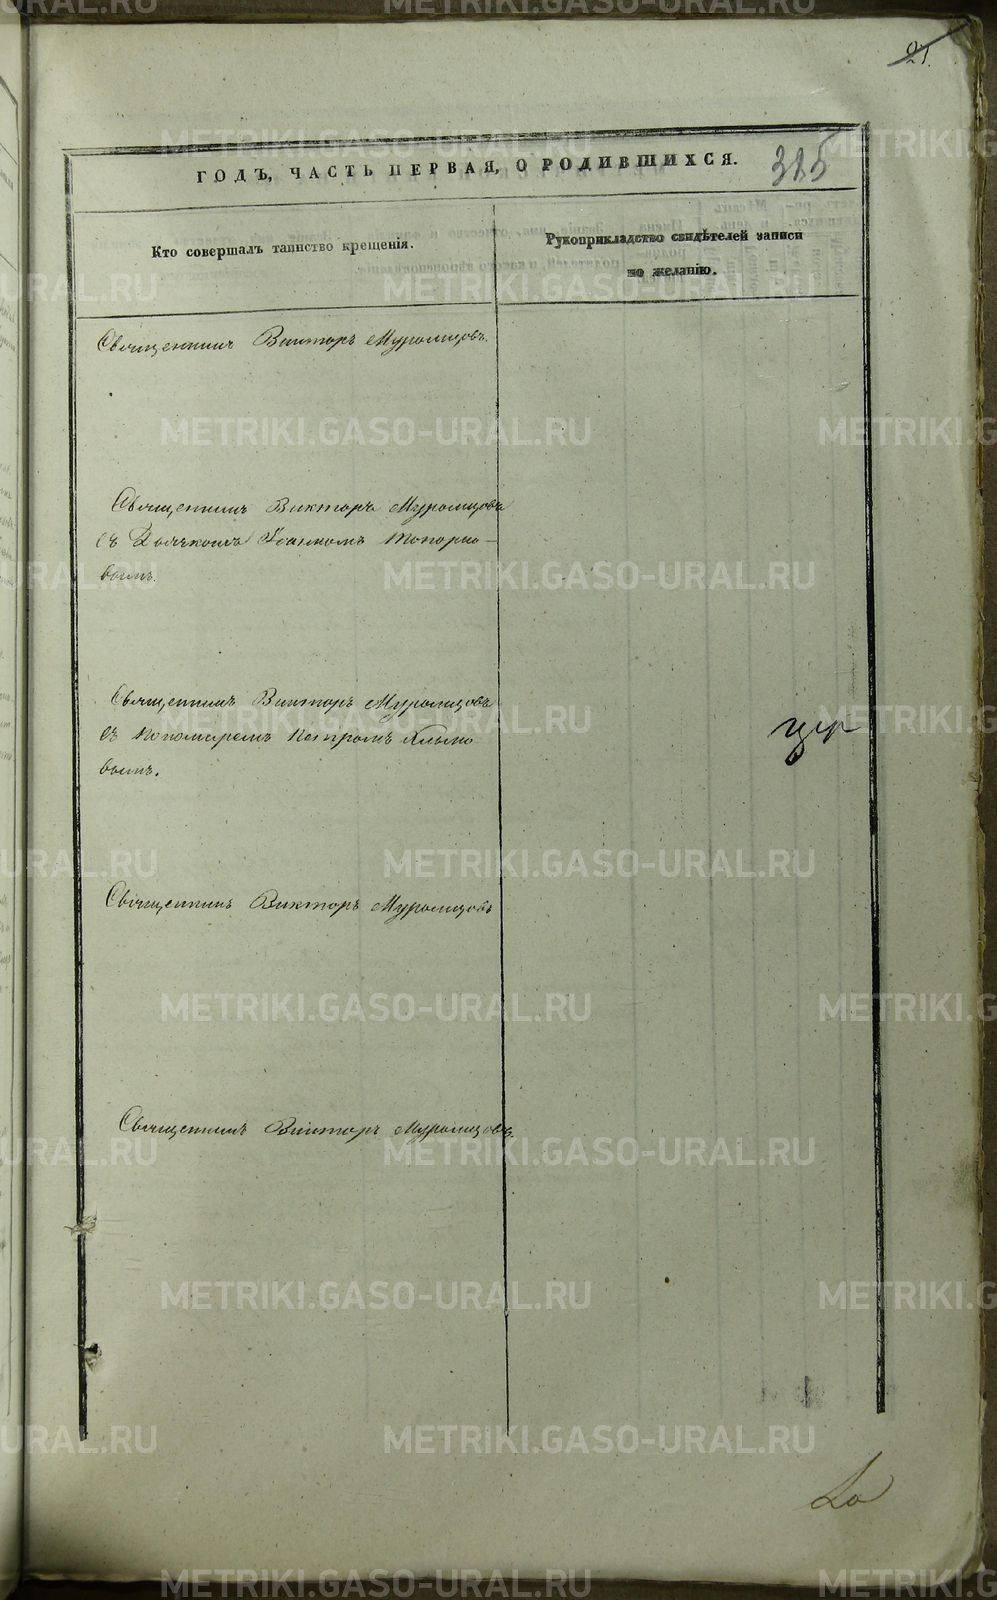 21.
ГОДЪ, ЧАСТЬ ПЕРВАЯ, О РОДИВШИХСЯ.
325
Кто совершалъ таинство крещенія.
Рукоприкладство свидѣтелей записи
по желанію.
Священникъ Викторъ Муромцовъ.
Священникъ Викторъ Муромцовъ
съ Дьячкомъ Іоанномъ Топорко-
вымъ.
Священникъ Викторъ Муромцовъ
съ Пономаремъ Петромъ
вымъ.
Священникъ Викторъ Муромцовъ
Священникъ Викторъ Муромцовъ.
METRIKI.GASO-URAL.RU